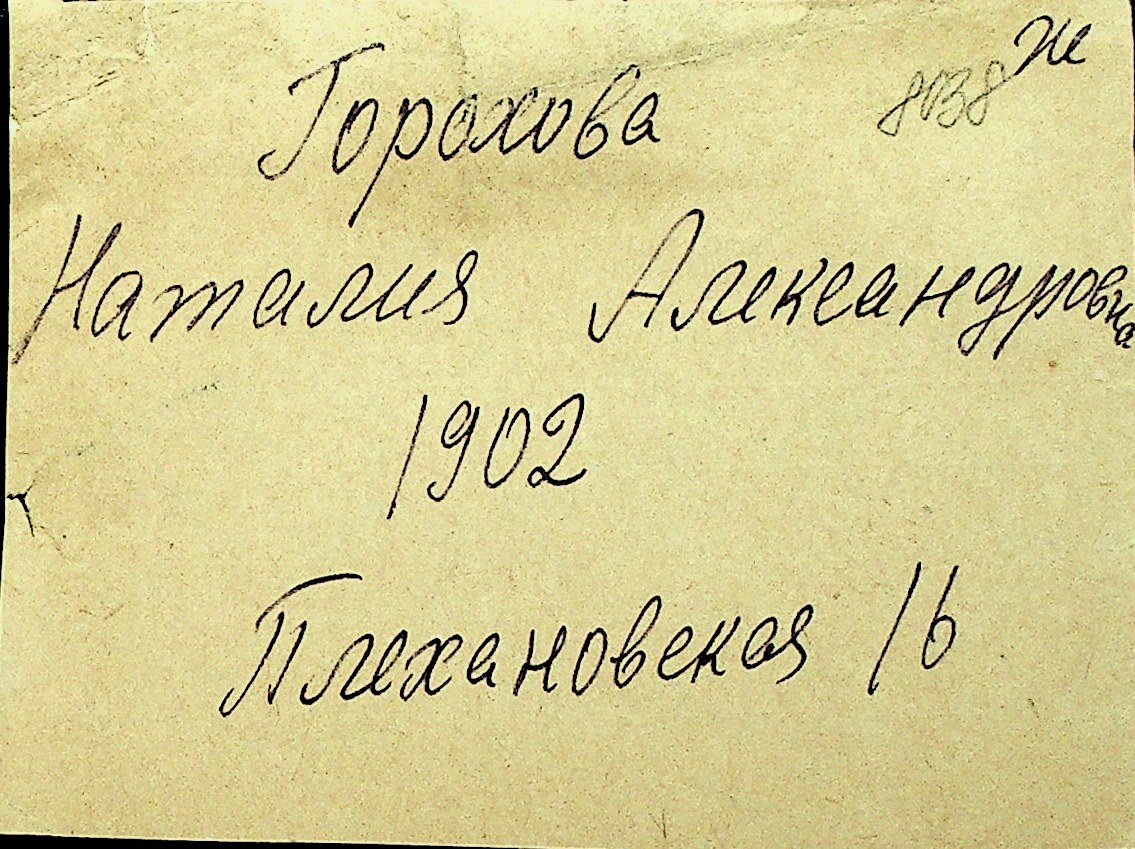 Ж
Горохова 8038
Наталия Александровна
1902
Плехановская 16